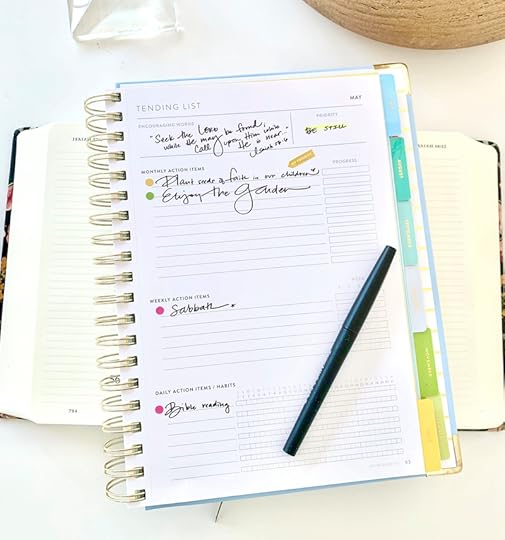 TENDING LIST
MAY
ENCOURAGING WORDS
PRIORITY
"Seek the LORD
while He may be found;
Call upon Him while
He is near."
Isaiah 55:6
BE STILL
MONTHLY ACTION ITEMS
PROGRESS
Plant seeds of faith in our children
Enjoy the Garden
WEEKLY ACTION ITEMS
WEEK
Sabbath
DAILY ACTION ITEMS / HABITS
Bible reading
93
794